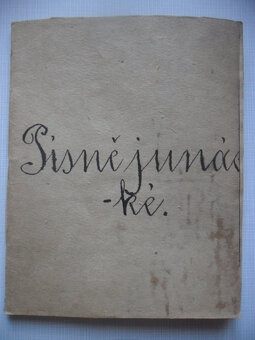 Písně junác
-ké.